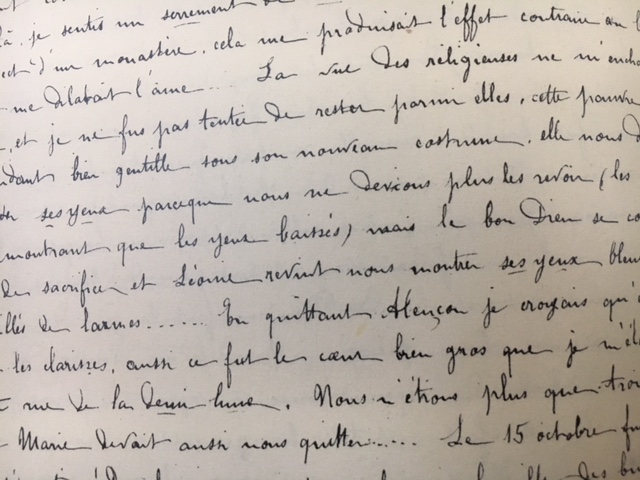 là, je sentis un serrement de
d'un monastère, cela me produisait l'effet contraire
me dilatait l'âme... La vue des religieuses ne
, et je ne fus pas tentée de rester parmi elles, cette pauvre
bien gentille sous son nouveau costume, elle nous
ses yeux parceque nous ne devions plus les revoir (les
montrant que les yeux baissés) mais le bon Dieu se
de sacrifice et Léonie revint nous montrer ses yeux bleus
de larmes...... En quittant Alençon je croyais qu'
les clarisses, aussi ce fut le cœur bien gros que je
rue de la demi lune. Nous n'étions plus que trois
Marie devait aussi nous quitter...... Le 15 octobre